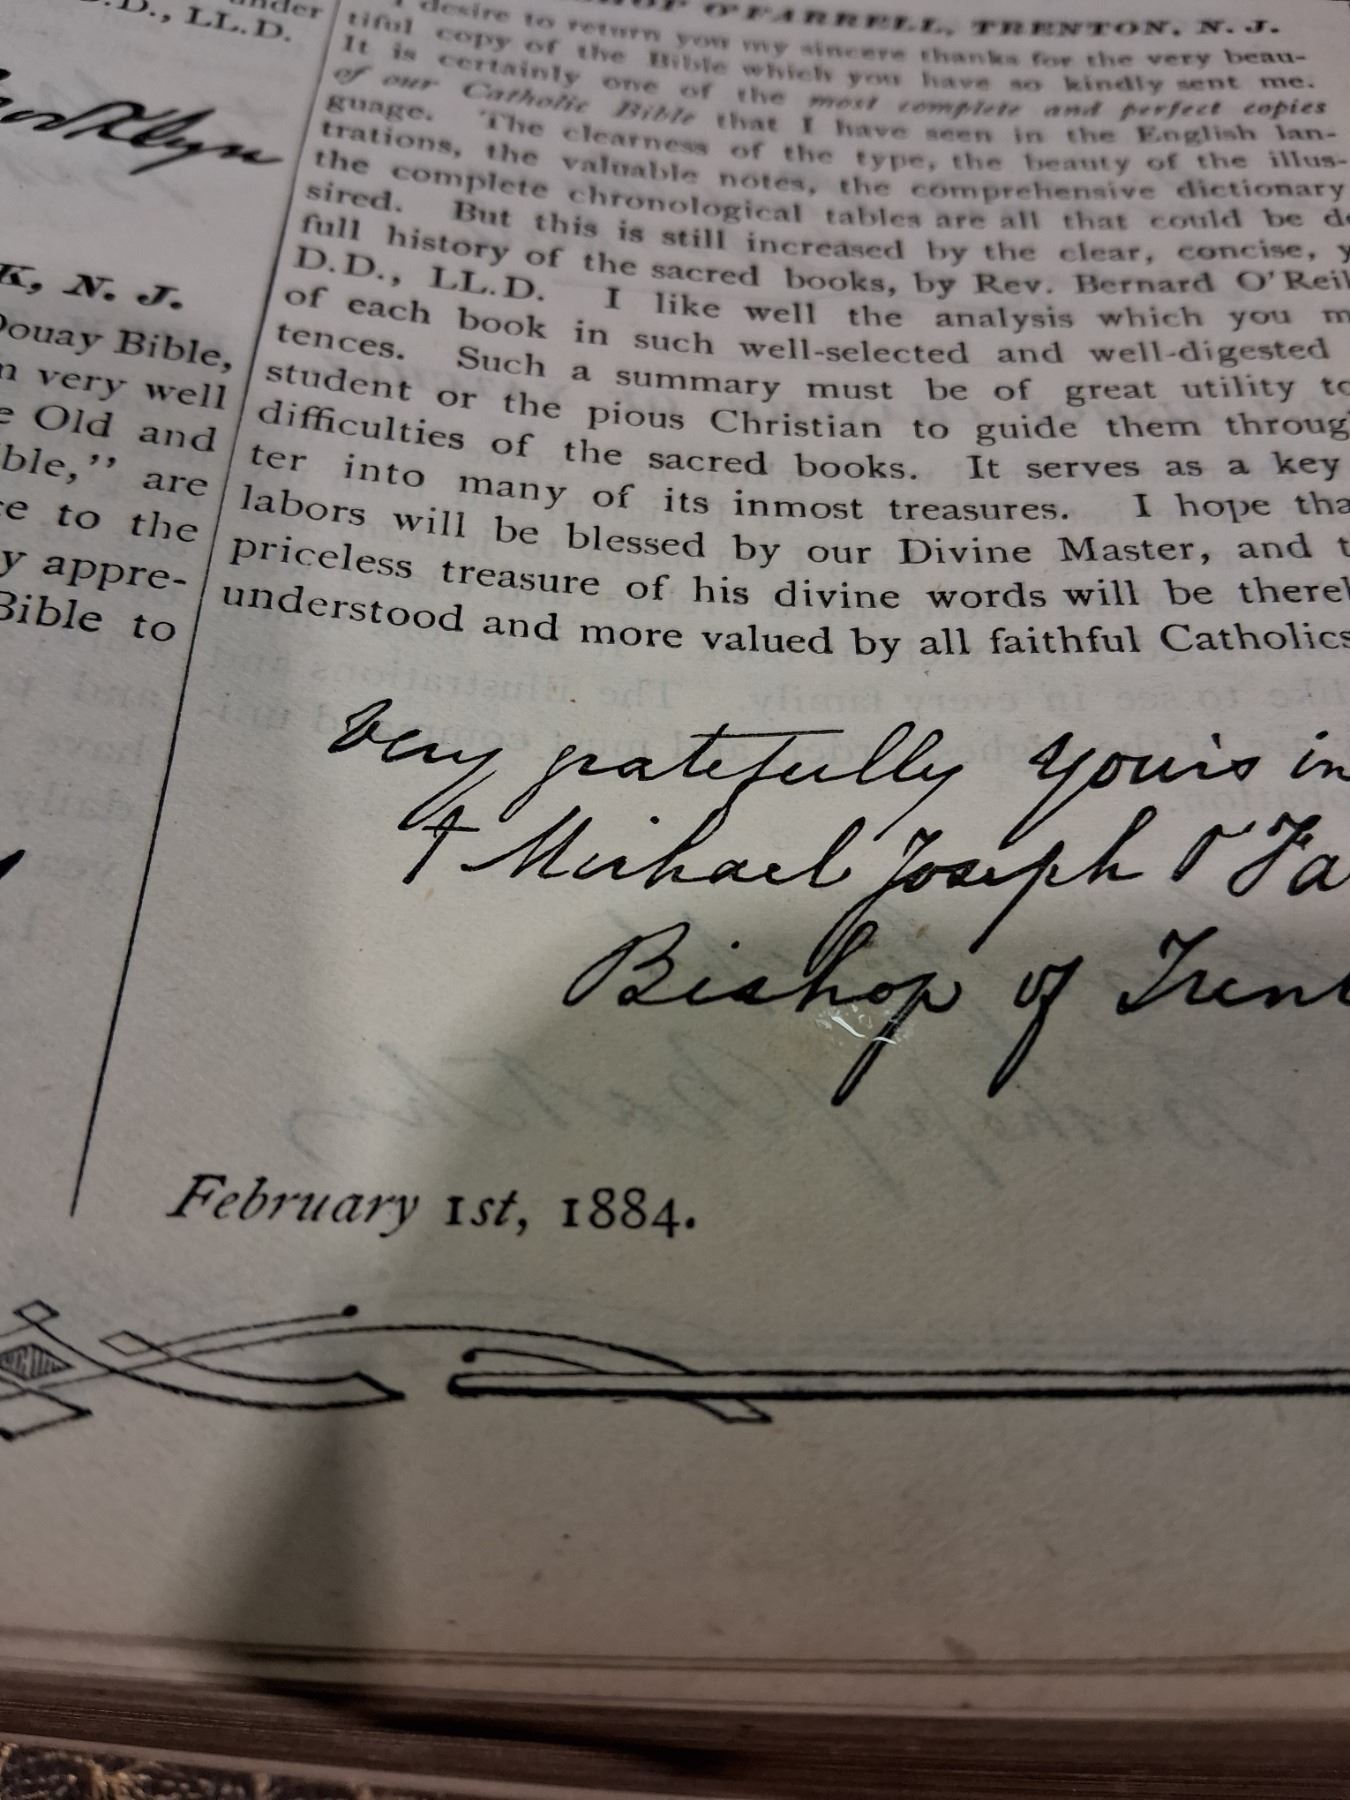 D.D., LL.D.
Brooklyn
K, N. J.
Douay Bible,
very well
Old and
ble," are
to the
appre-
Bible to
O'FARRELL, TRENTON, N. J.
I desire to return you my sincere thanks for the very beau-
tiful copy of the Bible which you have so kindly sent me.
It is certainly one of the most complete and perfect copies
of our Catholic Bible that I have seen in the English lan-
guage. The clearness of the type, the beauty of the illus-
trations, the valuable notes, the comprehensive dictionary
the complete chronological tables are all that could be de
sired. But this is still increased by the clear, concise, y
full history of the sacred books, by Rev. Bernard O'Reil
D.D., LL.D. I like well the analysis which you m
of each book in such well-selected and well-digested
tences. Such a summary must be of great utility to
student or the pious Christian to guide them throug
difficulties of the sacred books. It serves as a key
ter into many of its inmost treasures. I hope tha
labors will be blessed by our Divine Master, and t
priceless treasure of his divine words will be there
understood and more valued by all faithful Catholics
Very gratefully yours in
† Michael Joseph O'Fa
Bishop of Trent
February 1st, 1884.